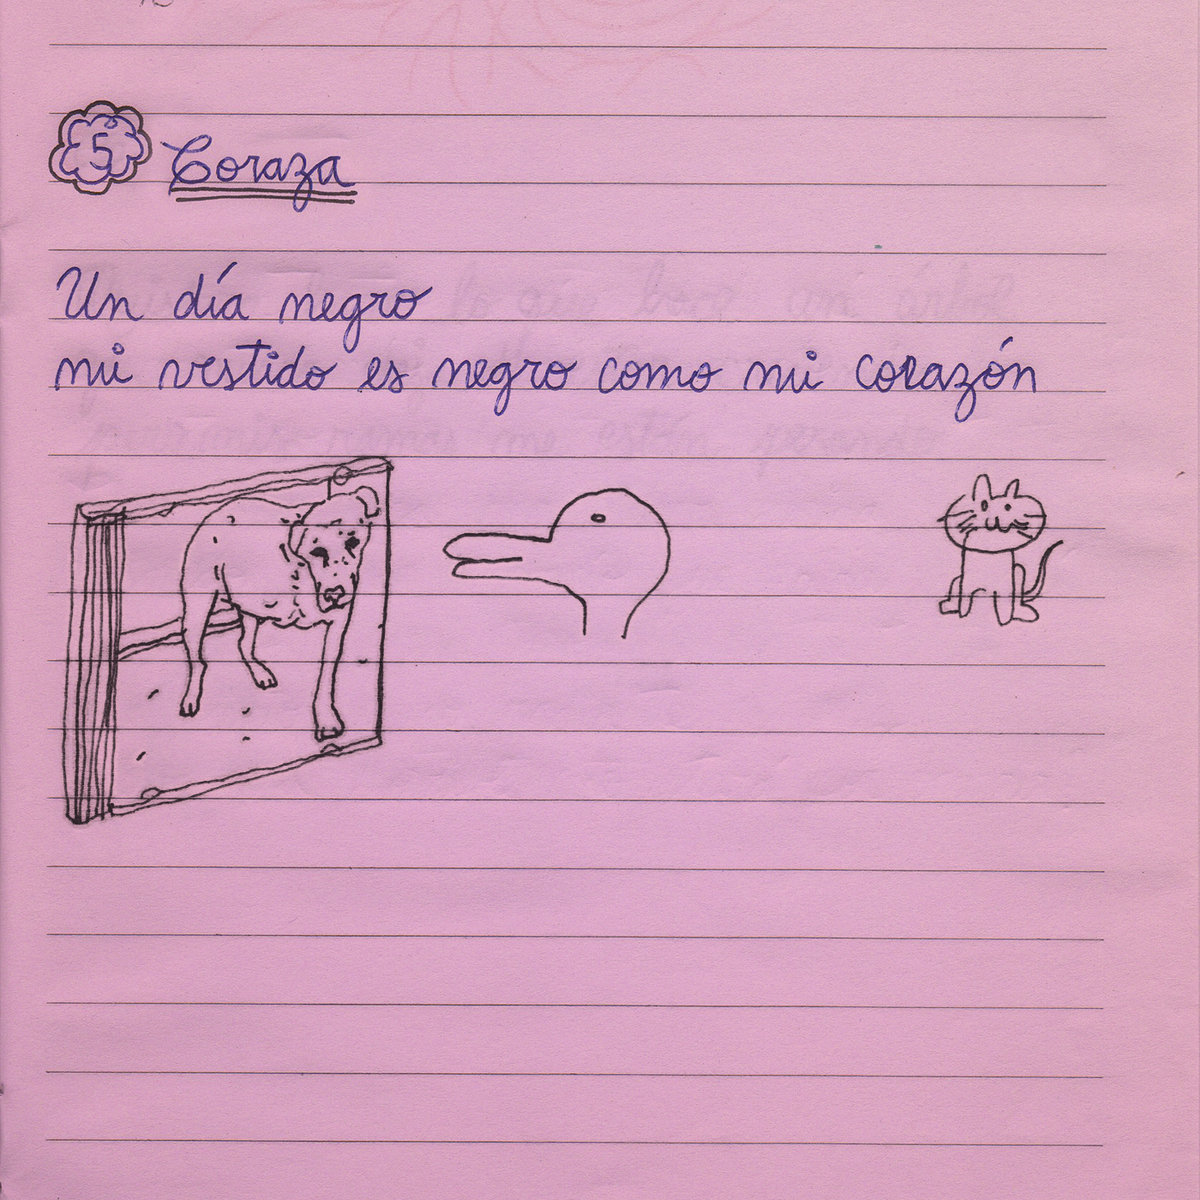 5 Coraza
Un día negro
mi vestido es negro como mi corazón